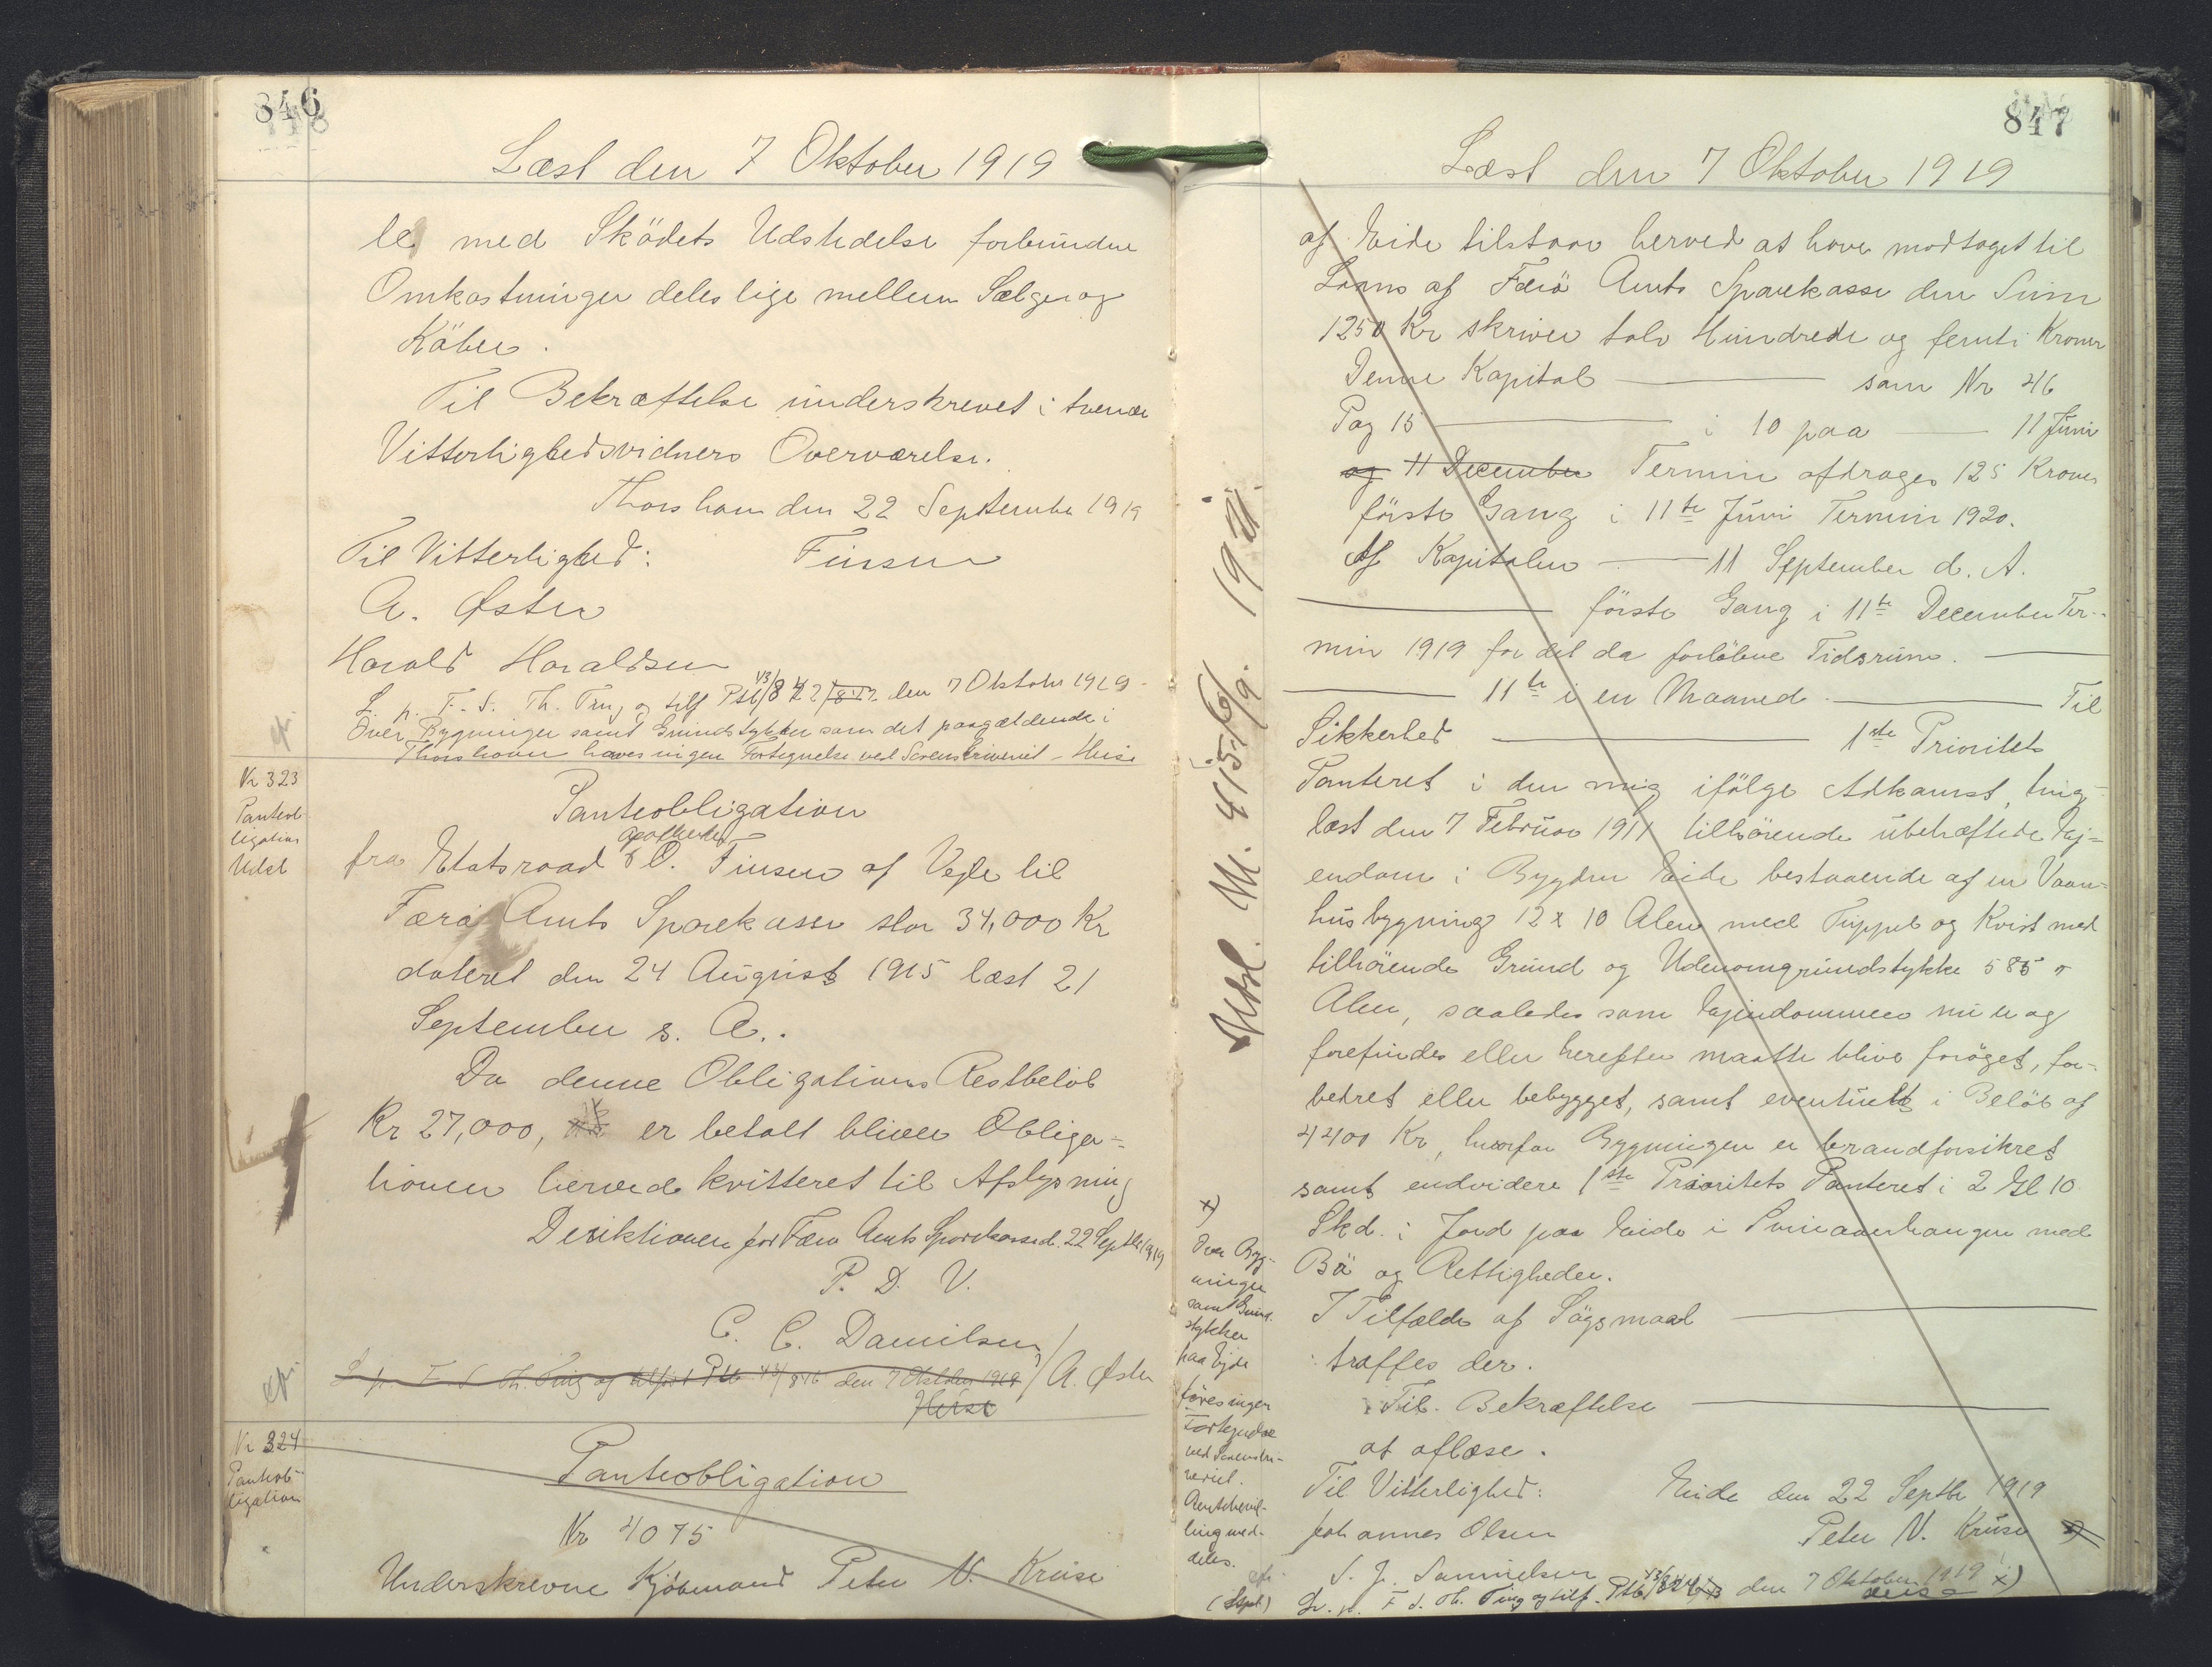 846
Læst den 7 Oktober 1919
le med Sködets Udstedelse forbundne
Omkostninger deles lige mellem Sælger og
Köber.
Til Bekræftelse underskrevet i tvende
Vitterlighedsvidners Overværelse.
Thorshavn den 22 September 1919
Til Vitterlighed: Finsen
A. Øster
Harald Haraldsen
L. p. F. S. Th. Ting og tilf den 7 Oktober 1919
Over Bygninger samt Grundstykker som det paagældende i
Thorshavn haves ingen Fortegnelse ved Sorenskriveriet - Heise
Nr 323
Panteob
ligation
Udsl
Panteobligation
fra Etatsraad apotheker O. Finsen af Vejle til
Færö Amts Sparekasse stor 34,000 Kr
dateret den 24 August 1915 læst 21
September s. A..
Da denne Obligations Restbelöb
Kr 27,000, er betalt bliver Obliga-
tionen herved kvitteret til Aflysning
Direktionen for Færö Amts Sparekasse d. 22 Septbr 1919
P. D. V.
C. C. Danielsen
/ A. Øster
L. p. F. S. Th. Ting og tilf den 7 Oktober 1919
Heise
Nr 324
Panteob-
ligation
Panteobligation
Nr 4075
Underskrevne Kjöbmand Peter N. Kruse
847
Læst den 7 Oktober 1919
af Eide tilstaar herved at have modtaget til
Laans af Færö Amts Sparekasse den Sum
1250 Kr skriver tolv Hundrede og femti Kroner
Denne Kapital — som Nr 46
Pag 15 — i 10 paa — 11 Juni
og 11 December Termin afdrages 125 Kroner
förste Gang i 11te Juni Termin 1920.
Af Kapitalen — 11 September d. A.
— förste Gang i 11te December Ter-
min 1919 for det da forlöbne Tidsrum. —
— 11te i en Maaned. — Til
Sikkerhed — 1ste Prioritets
Panteret i den mig ifölge Adkomst, ting-
læst den 7 Februar 1911 tilhörende ubehæftede Ej-
endom i Bygden Eide bestaaende af en Vaan-
husbygning 12 x 10 Alen med Tuppel og Kvist med
tilhörende Grund og Udenomgrundstykke 585 □
Alen, saaledes som Ejendommen nu er og
forefindes eller herefter maatte blive foröget, for-
bedret eller bebygget, samt eventuelt i Belöb af
4400 Kr, hvorfor Bygningen er brandforsikret
samt endvidere 1ste Prioritets Panteret i 2 Gl 10
Skd. i Jord paa Eide i med
Bö og Rettigheder.
I Tilfælde af Sögsmaal —
træffes der.
Til Bekræftelse —
at aflæse.
Til Vitterlighed: Eide den 22 Septbr 1919
Johannes Olsen Peter N. Kruse x)
S. J. Samuelsen
L. p. F. S. Th. Ting og tilf. den 7 Oktober 1919 x)
Heise
Udsl. M. 415
x)
Over Byg-
ninger
samt Grund
stykker
paa Ejde
föres ingen
Fortegnelse
ved Sorenskri-
veriet.